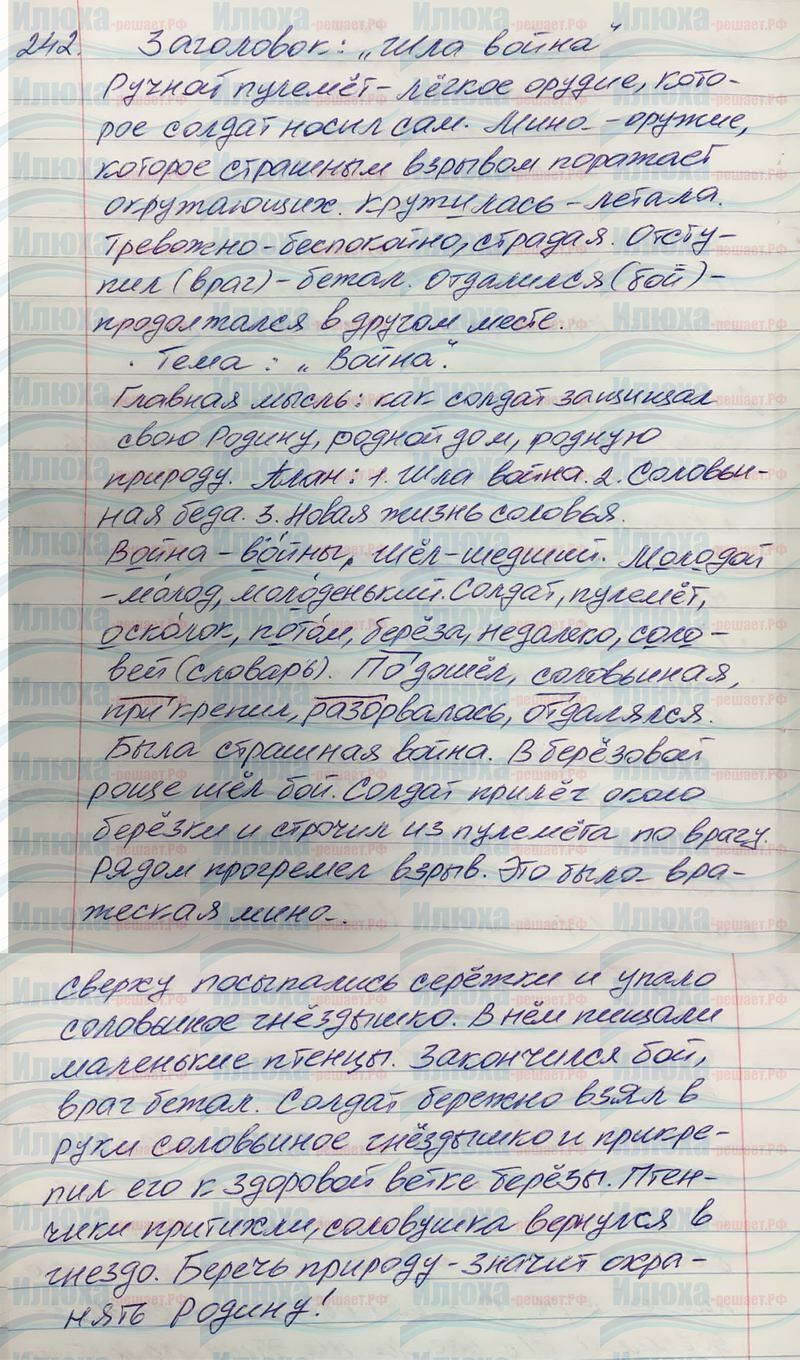 242. Заголовок: „Шла война"
Ручной пулемёт – лёгкое орудие, кото-
рое солдат носил сам. Мина – оружие,
которое страшным взрывом поражает
окружающих. Кружилась – летала.
Тревожно – беспокойно, страдая. Отсту-
пил (враг) – бежал. Отдалился (бой) –
продолжался в другом месте.
Тема: „Война".
Главная мысль: как солдат защищал
свою Родину, родной дом, родную
природу. План: 1. Шла война. 2. Соловьи-
ная беда. 3. Новая жизнь соловья.
Война – войны, шёл – шедший. Молодой
– молод, молоденький. Солдат, пулемёт,
осколок, потом, берёза, недалеко, соло-
вей (словарь). Подошёл, соловьиная,
прикрепил, разорвалась, отдалялся.
Была страшная война. В берёзовой
роще шёл бой. Солдат прилёг около
берёзки и строчил из пулемёта по врагу.
Рядом прогремел взрыв. Это была вра-
жеская мина.
Сверху посыпались серёжки и упало
соловьиное гнёздышко. В нём пищали
маленькие птенцы. Закончился бой,
враг бежал. Солдат бережно взял в
руки соловьиное гнёздышко и прикре-
пил его к здоровой ветке берёзы. Птен-
чики притихли, соловушка вернулся в
гнездо. Беречь природу – значит охра-
нять Родину!